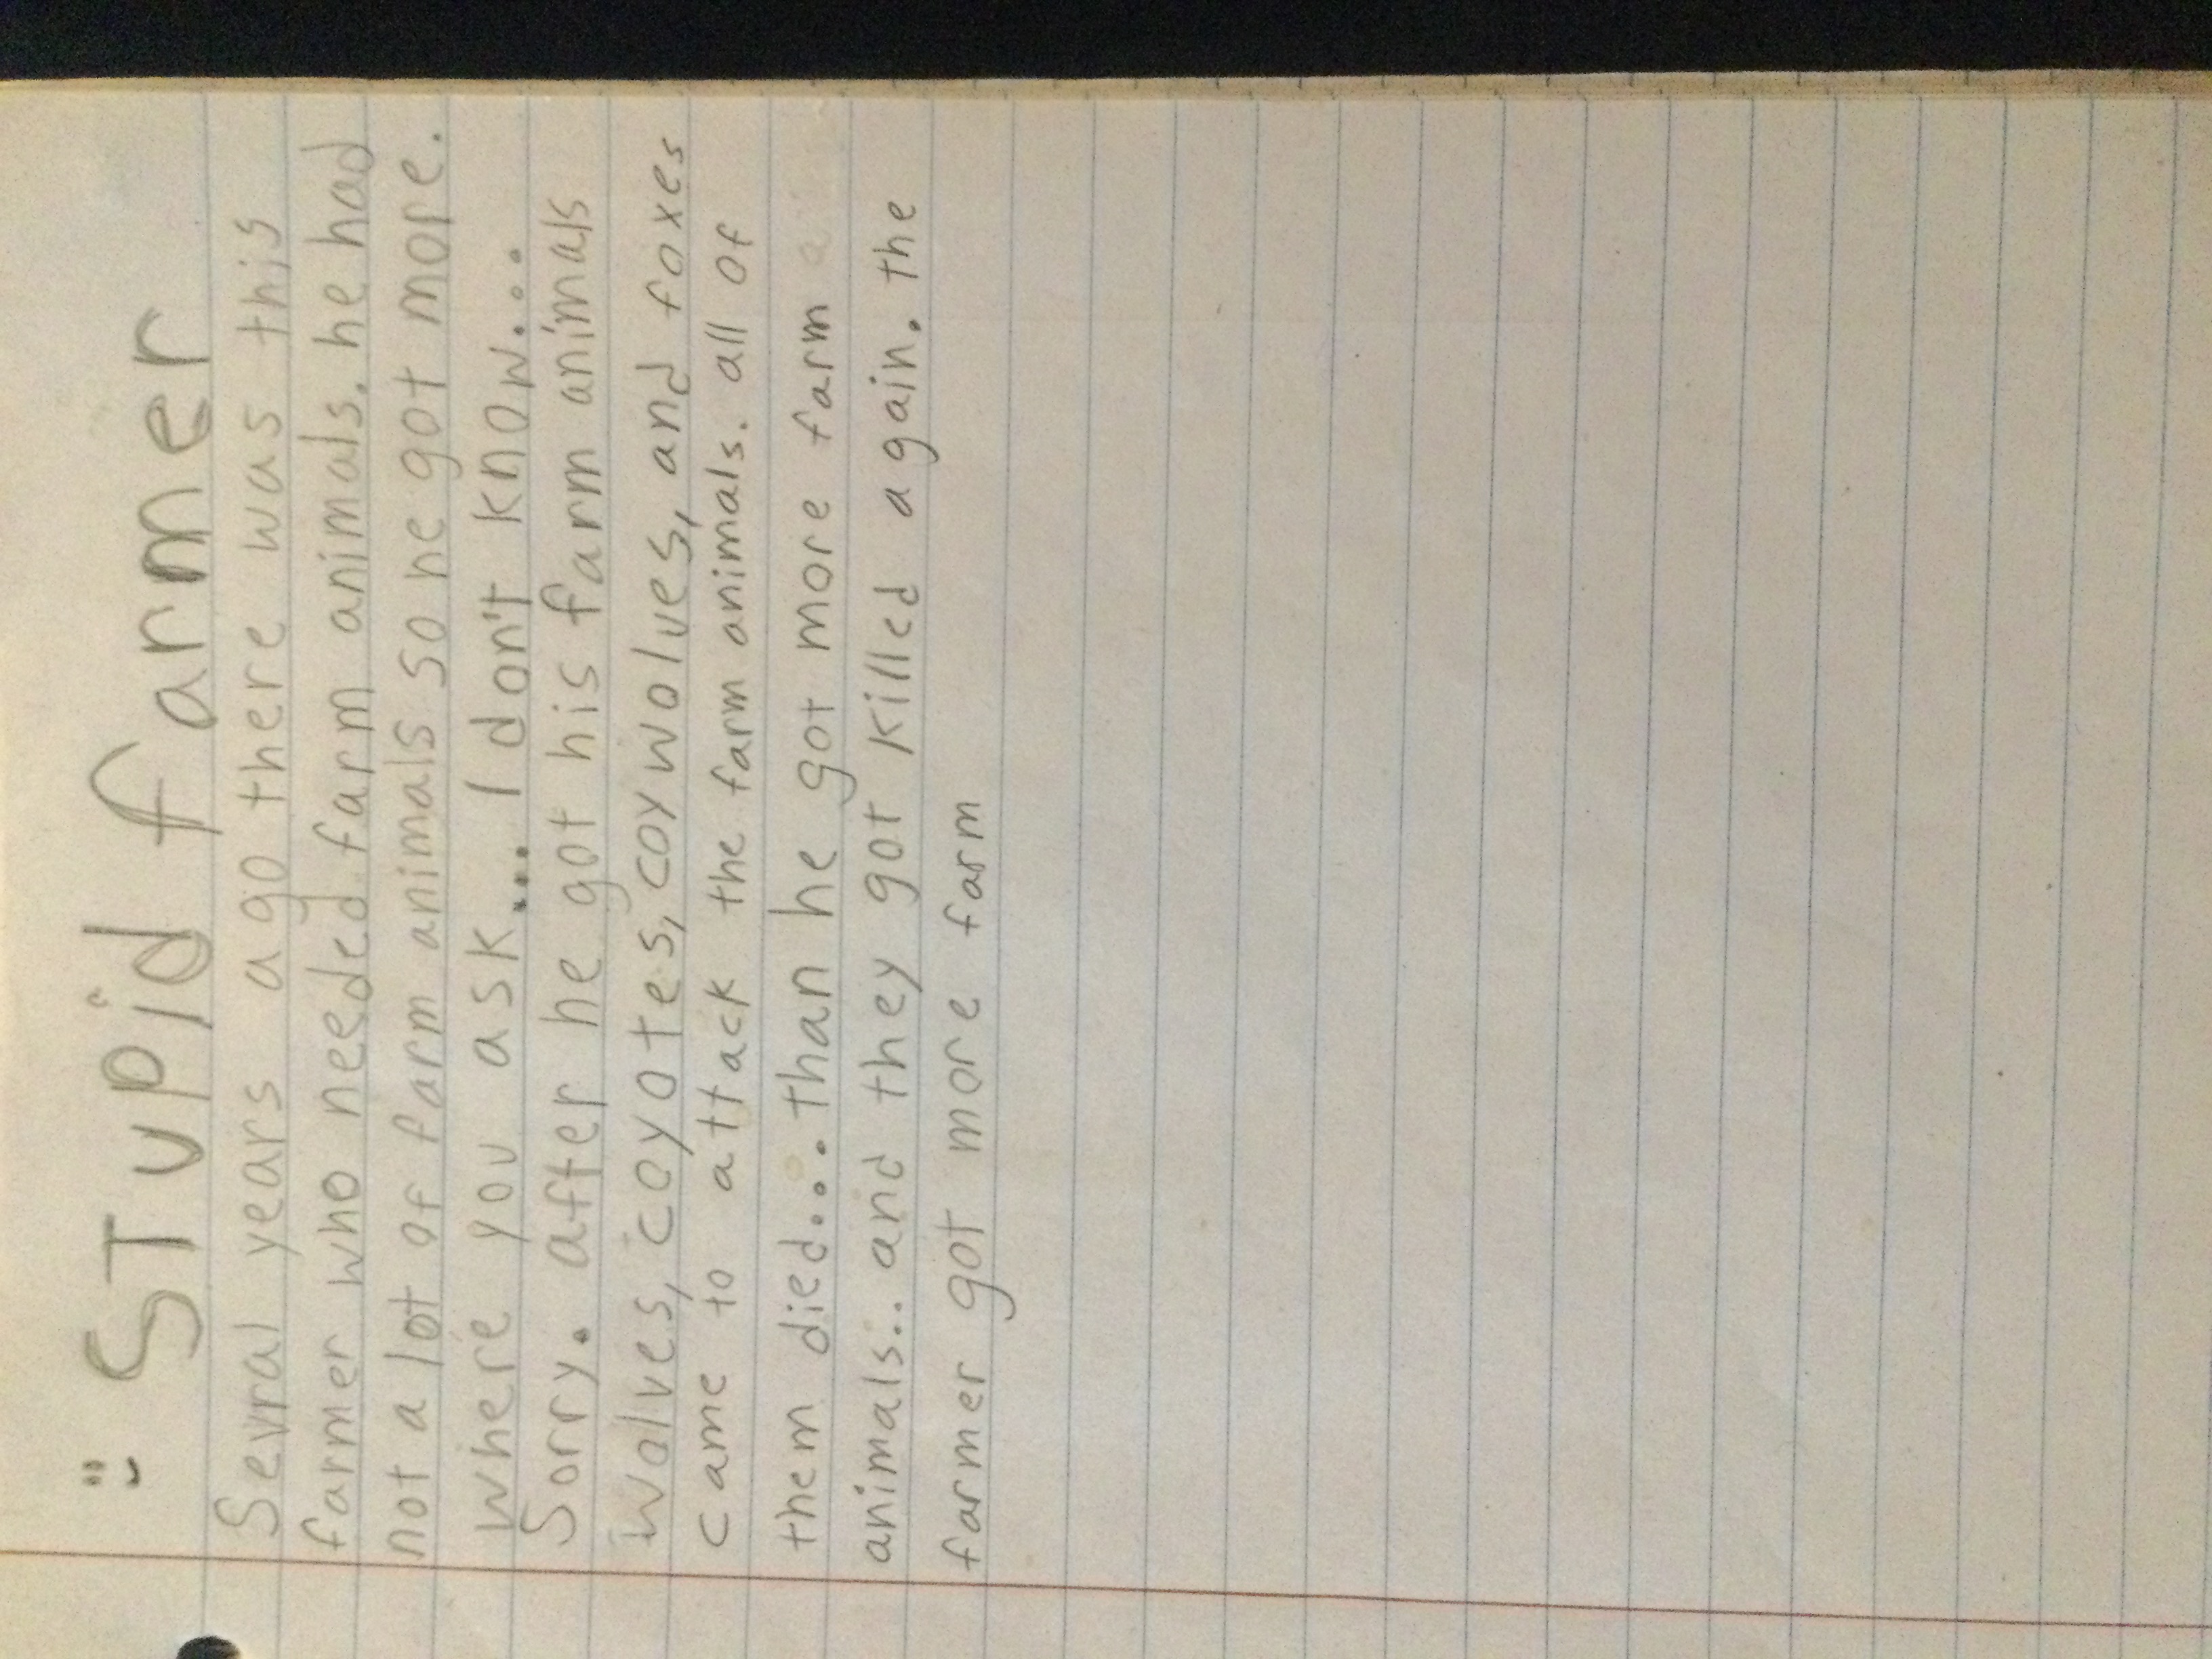 STupid farmer
Sevral years ago there was this
farmer who needed farm animals. he had
not a lot of farm animals so he got more.
where you ask.... I don't know....
Sorry. after he got his farm animals
wolves, coyotes, coywolves, and foxes
came to attack the farm animals. all of
them died... than he got more farm
animals... and they got killed again. the
farmer got more farm